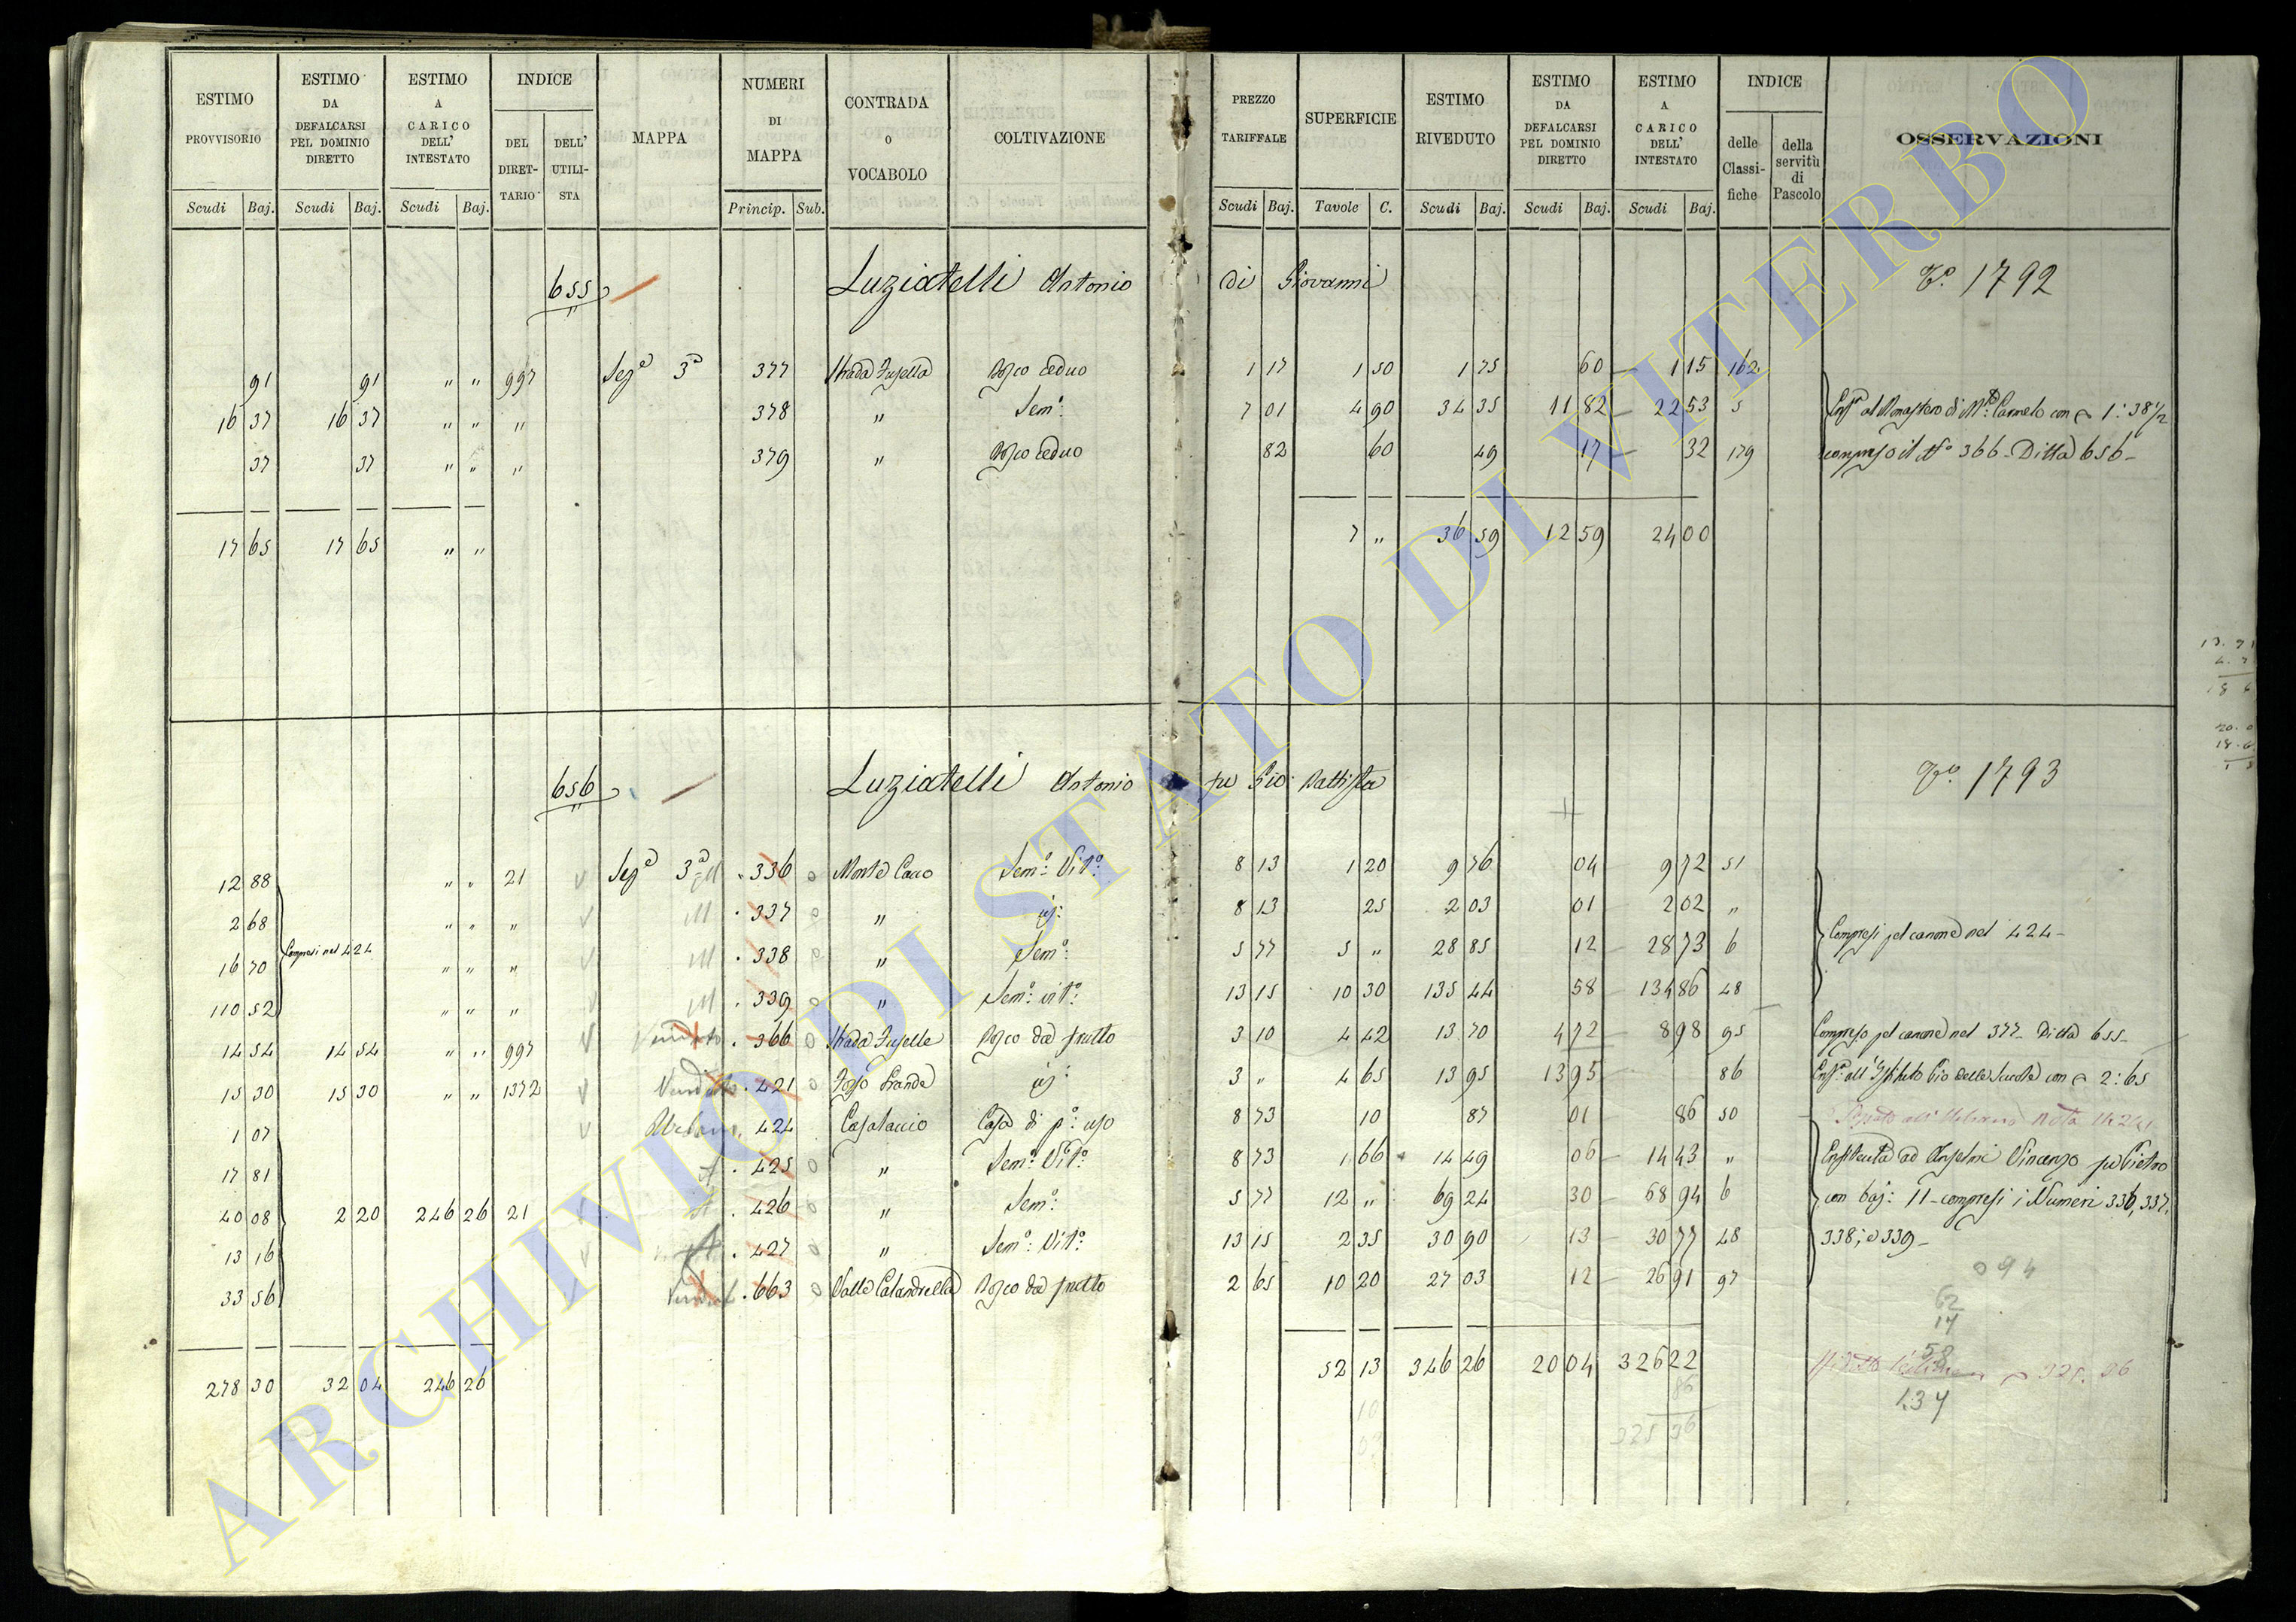 ESTIMO PROVVISORIO | ESTIMO DA DEFALCARSI PEL DOMINIO DIRETTO | ESTIMO A CARICO DELL' INTESTATO | INDICE | MAPPA | NUMERI DI MAPPA | CONTRADA o VOCABOLO | COLTIVAZIONE | PREZZO TARIFFALE | SUPERFICIE | ESTIMO RIVEDUTO | ESTIMO DA DEFALCARSI PEL DOMINIO DIRETTO | ESTIMO A CARICO DELL' INTESTATO | INDICE | OSSERVAZIONI
DEL DIRETTARIO | DELL' UTILISTA | delle Classifiche | della servitù di Pascolo
Scudi | Baj. | Scudi | Baj. | Scudi | Baj. | Princip. | Sub. | Scudi | Baj. | Tavole | C. | Scudi | Baj. | Scudi | Baj. | Scudi | Baj.
655 Luziatelli Antonio di Giovanni 1792
91 | 91 | " " | 997 | Seg.e 3.a | 377 | Strada Fusella | Bosco ceduo | 1 17 | 1 50 | 1 75 | 60 | 1 15 | 162
16 37 | 16 37 | " " | " | 378 | " | Sem.o | 7 01 | 4 90 | 34 35 | 11 82 | 22 53 | 5 | al Monastero di M.te Carmelo con 1: 38 1/2
37 | 37 | " " | " | 379 | " | Bosco ceduo | 82 | 60 | 49 | 17 | 32 | 179 | compreso il N.o 366 - Ditta 656 -
17 65 | 17 65 | " " | 7 " | 36 59 | 12 59 | 24 00
656 Luziatelli Antonio fu Gio Battista 1793
12 88 | " " | 21 | Seg.e 3.a | 336 | Monte Cacco | Sem.o Vit.o | 8 13 | 1 20 | 9 76 | 04 | 9 72 | 51
2 68 | " " | " | 337 | " | id: | 8 13 | 25 | 2 03 | 01 | 2 02 | "
16 70 | Compresi nel 424 | " " | " | 338 | " | Sem.o | 5 77 | 5 " | 28 85 | 12 | 28 73 | 6 | Compresi pel canone nel 424 -
110 52 | " " | " | 339 | " | Sem.o vit.o | 13 15 | 10 30 | 135 44 | 58 | 134 86 | 48
14 54 | 14 54 | " " | 997 | Venduto | 366 | Strada Fuselle | Bosco da frutto | 3 10 | 4 42 | 13 70 | 4 72 | 8 98 | 95 | Compreso pel canone nel 377 - Ditta 655 -
15 30 | 15 30 | " " | 1372 | Venduto | 421 | Fosso Grande | id: | 3 " | 4 65 | 13 95 | 13 95 | 86 | all' Istituto Pio delle Scuole con 2: 65
1 07 | Urbano | 424 | Casalaccio | Casa di p.o uso | 8 73 | 10 | 87 | 01 | 86 | 50
17 81 | 425 | " | Sem.o Vit.o | 8 73 | 1 66 | 14 49 | 06 | 14 43 | " | Enfiteuta ad Anselmi Vincenzo fu Pietro
40 08 | 2 20 | 246 26 | 21 | 426 | " | Sem.o | 5 77 | 12 " | 69 24 | 30 | 68 94 | 6 | con baj: 11 - compresi i Numeri 336, 337,
13 16 | 427 | " | Sem.o Vit.o | 13 15 | 2 35 | 30 90 | 13 | 30 77 | 48 | 338, e 339 -
33 56 | 663 | Valle Calandrella | Bosco da frutto | 2 65 | 10 20 | 27 03 | 12 | 26 91 | 97
0 94
62
14
58
1:34
278 30 | 32 04 | 246 26 | 52 13 | 346 26 | 20 04 | 326 22
86
325 36
ARCHIVIO DI STATO DI VITERBO